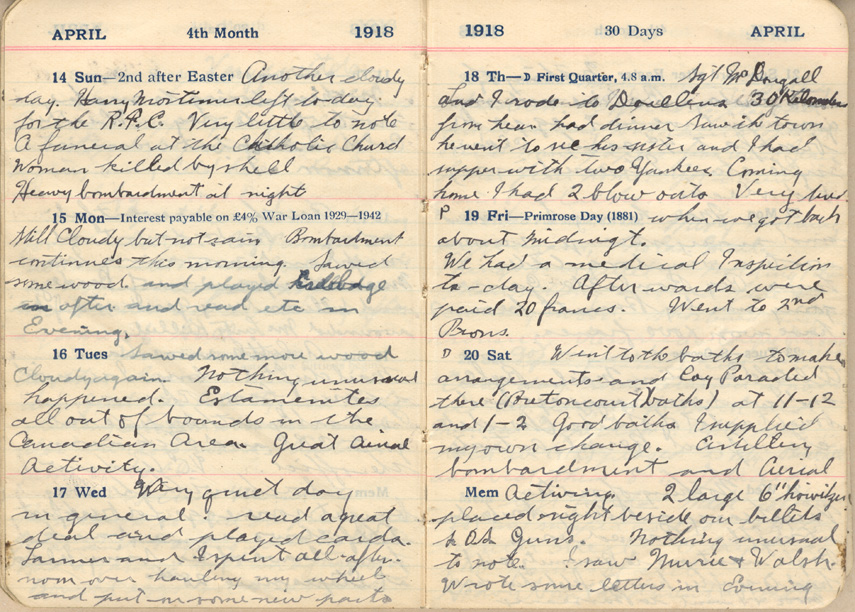 APRIL 4th Month 1918
14 Sun—2nd after Easter Another cloudy
day. Harry Mortimer left to-day.
for the R.F.C. Very little to note
A funeral at the Catholic Church
Woman killed by shell
Heavy bombardment at night
15 Mon—Interest payable on £4% War Loan 1929—1942
Still Cloudy but not rain Bombardment
continues this morning Sawed
some wood and played
in after and read etc in
Evening.
16 Tues Sawed some more wood
Cloudy again. Nothing unusual
happened. Estaminets
all out of bounds in the
Canadian Area. Great Aerial
Activity.
17 Wed Very quiet day
in general. read a great
deal and played cards.
and I spent all after-
noon over hauling my wheel
and put on some new parts
1918 30 Days APRIL
18 Th—D First Quarter, 4.8 a.m. Sgt McDougall
and I rode to Doullens 30 Kilometers
from hear had dinner Saw the town
he went to see his sister and I had
supper with two Yankees Coming
home I had 2 blow outs Very tired
P 19 Fri—Primrose Day (1881) when we got back
about midnigt.
We had a medical Inspection
to-day. Afterwards were
paid 20 francs. Went to 2nd
Brons.
D 20 Sat Went to the baths to make
arrangements and Coy Paraded
there (Bretoncourt baths) at 11-12
and 1-2 Good baths I supplied
my own change. Artillery
bombardment and Aerial
Mem Activing. 2 large 6" howitzers
placed right beside our billets
Guns. Nothing unusual
to note. I saw Murie & Walsh.
Wrote some letters in Evening